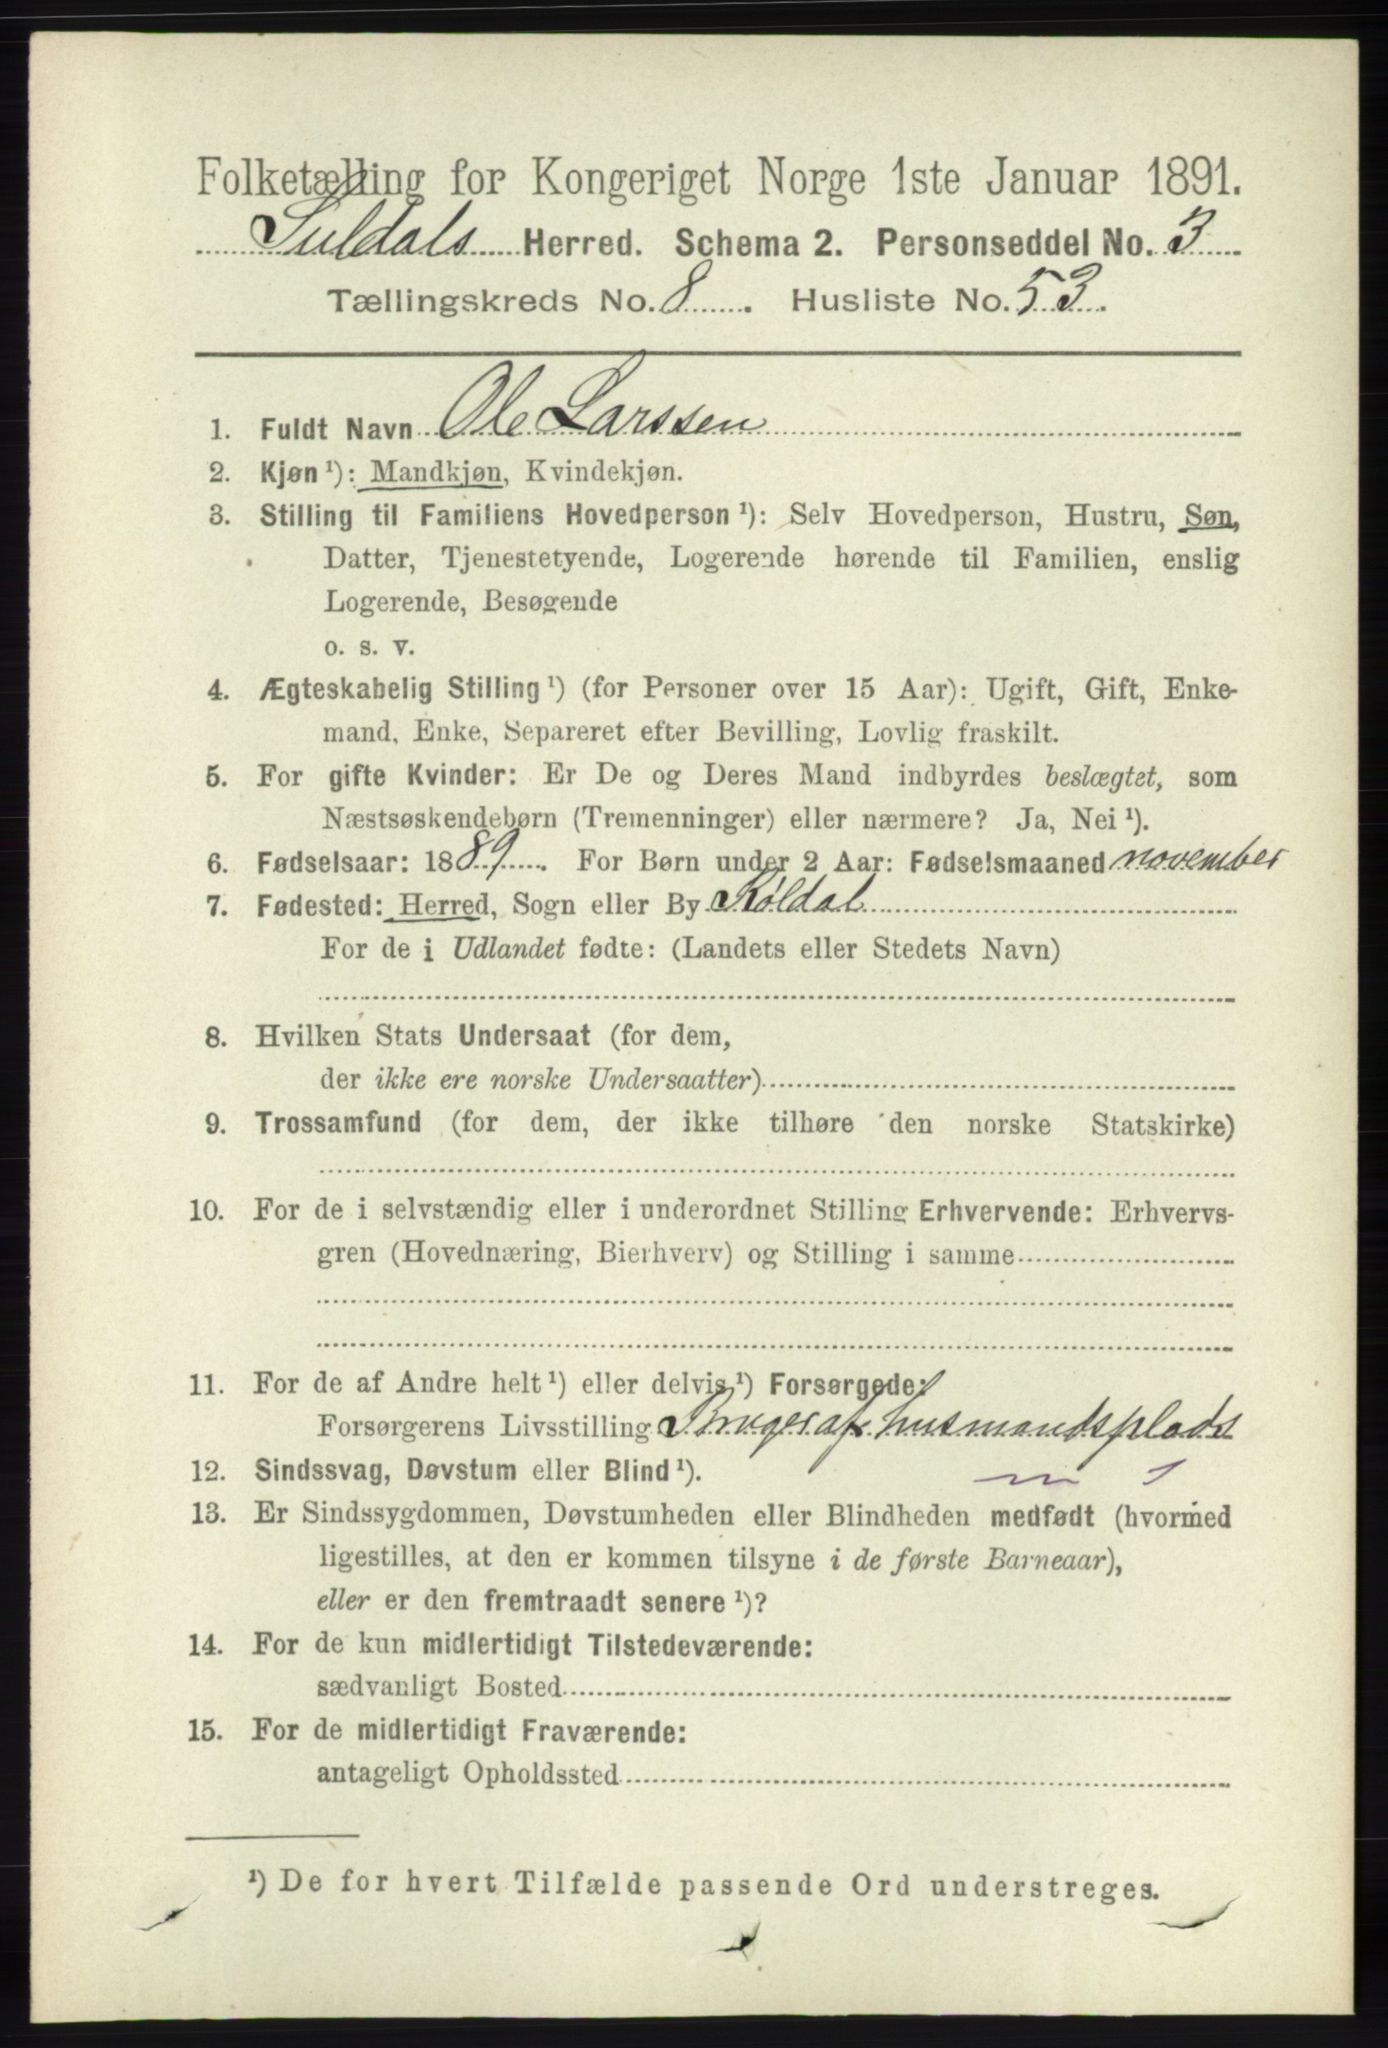 Folketælling for Kongeriget Norge 1ste Januar 1891.
Suldals Herred. Schema 2. Personseddel No. 3
Tællingskreds No. 8. Husliste No. 53.
1. Fuldt Navn Ole Larssen
2. Kjøn ¹): Mandkjøn, Kvindekjøn.
3. Stilling til Familiens Hovedperson ¹): Selv Hovedperson, Hustru, Søn,
Datter, Tjenestetyende, Logerende hørende til Familien, enslig
Logerende, Besøgende
o. s. v.
4. Ægteskabelig Stilling ¹) (for Personer over 15 Aar): Ugift, Gift, Enke-
mand, Enke, Separeret efter Bevilling, Lovlig fraskilt.
5. For gifte Kvinder: Er De og Deres Mand indbyrdes beslægtet, som
Næstsøskendebørn (Tremenninger) eller nærmere? Ja, Nei ¹).
6. Fødselsaar: 1889. For Børn under 2 Aar: Fødselsmaaned november
7. Fødested: Herred, Sogn eller By Røldal
For de i Udlandet fødte: (Landets eller Stedets Navn)
8. Hvilken Stats Undersaat (for dem,
der ikke ere norske Undersaatter)
9. Trossamfund (for dem, der ikke tilhøre den norske Statskirke)
10. For de i selvstændig eller i underordnet Stilling Erhvervende: Erhvervs-
gren (Hovednæring, Bierhverv) og Stilling i samme
11. For de af Andre helt ¹) eller delvis ¹) Forsørgede:
Forsørgerens Livsstilling Bruger af husmandsplads
12. Sindssvag, Døvstum eller Blind ¹).
13. Er Sindssygdommen, Døvstumheden eller Blindheden medfødt (hvormed
ligestilles, at den er kommen tilsyne i de første Barneaar),
eller er den fremtraadt senere ¹)?
14. For de kun midlertidigt Tilstedeværende:
sædvanligt Bosted
15. For de midlertidigt Fraværende:
antageligt Opholdssted
¹) De for hvert Tilfælde passende Ord understreges.